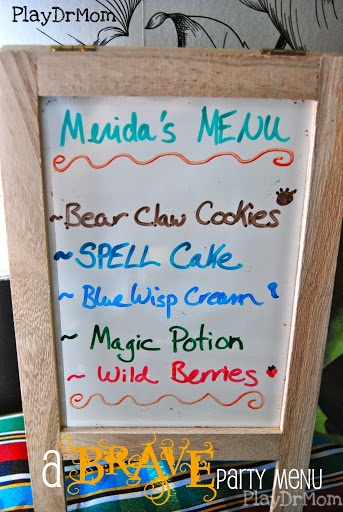 PlayDrMom
Merida's MENU
~Bear Claw Cookies
~SPELL Cake
~Blue Wisp Cream
~ Magic Potion
~ Wild Berries
a BRAVE party menu
PlayDrMom